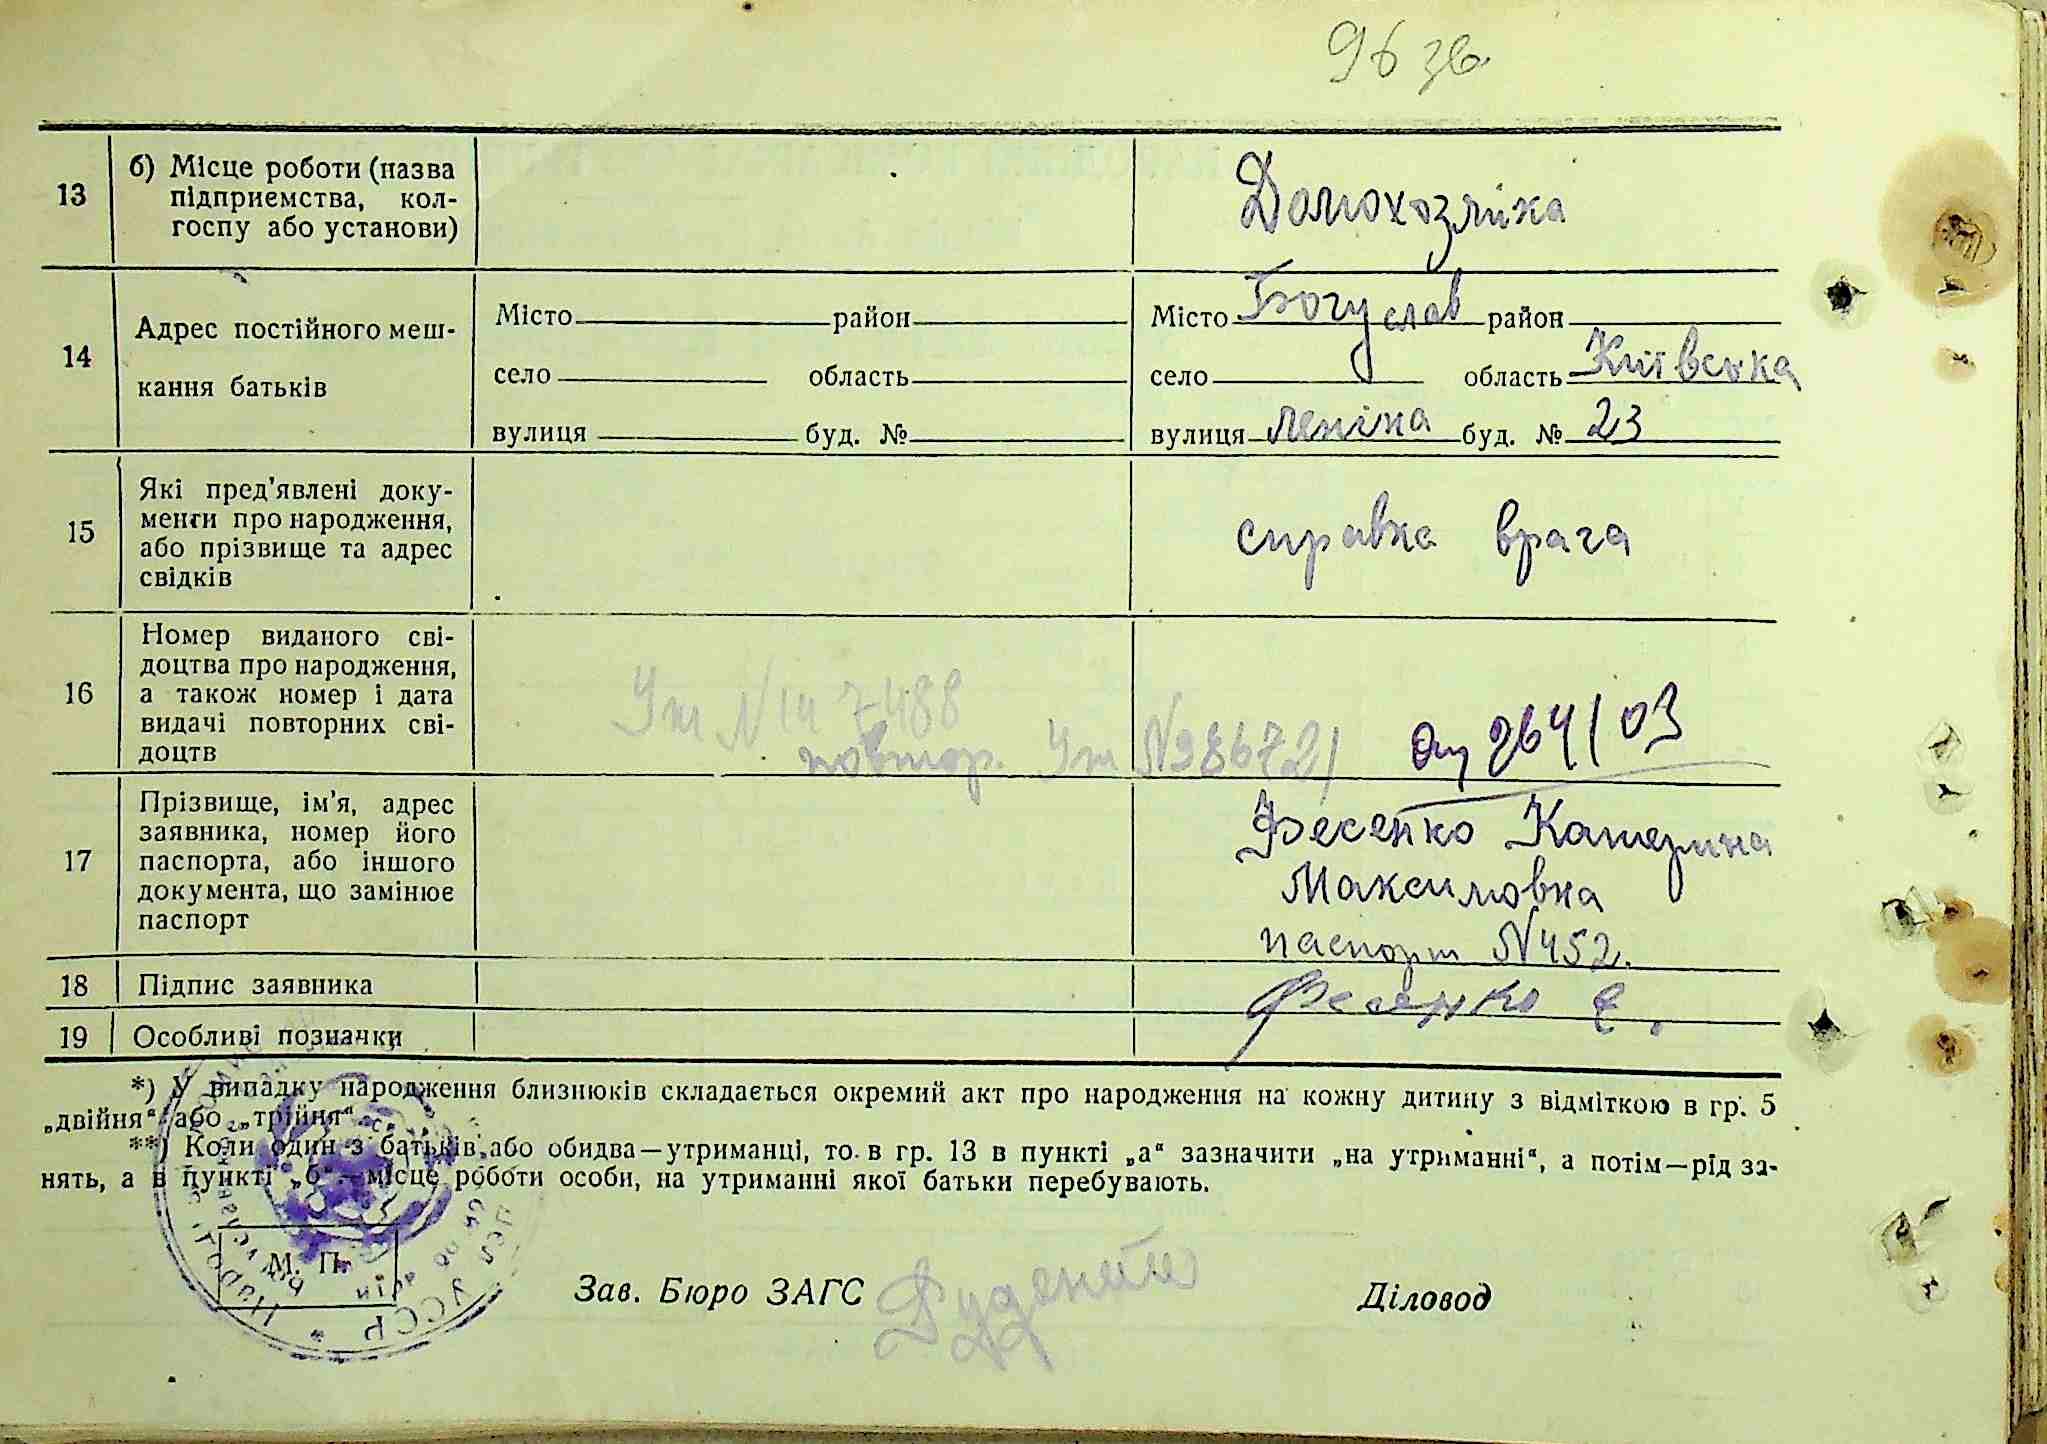 96 зв.
13
б) Місце роботи (назва
підприємства, кол-
госпу або установи)
Домохозяйка
14
Адрес постійного меш-
кання батьків
Місто район
село область
вулиця буд. №
Місто Богуслав район
село область Київська
вулиця Леніна буд. № 23
15
Які пред'явлені доку-
менти про народження,
або прізвище та адрес
свідків
справка врача
16
Номер виданого сві-
доцтва про народження,
а також номер і дата
видачі повторних сві-
доцтв
повтор.
17
Прізвище, ім'я, адрес
заявника, номер його
паспорта, або іншого
документа, що замінює
паспорт
Фесенко Катерина
Максимовна
паспорт №452.
18 Підпис заявника
Фесенко Е.
19 Особливі позначки
*) У випадку народження близнюків складається окремий акт про народження на кожну дитину з відміткою в гр. 5
„двійня“ або „трійня“.
**) Коли один з батьків або обидва—утриманці, то в гр. 13 в пункті „а“ зазначити „на утриманні“, а потім—рід за-
нять, а в пункті „б“—місце роботи особи, на утриманні якої батьки перебувають.
М. П.
Зав. Бюро ЗАГС
Діловод
УССР